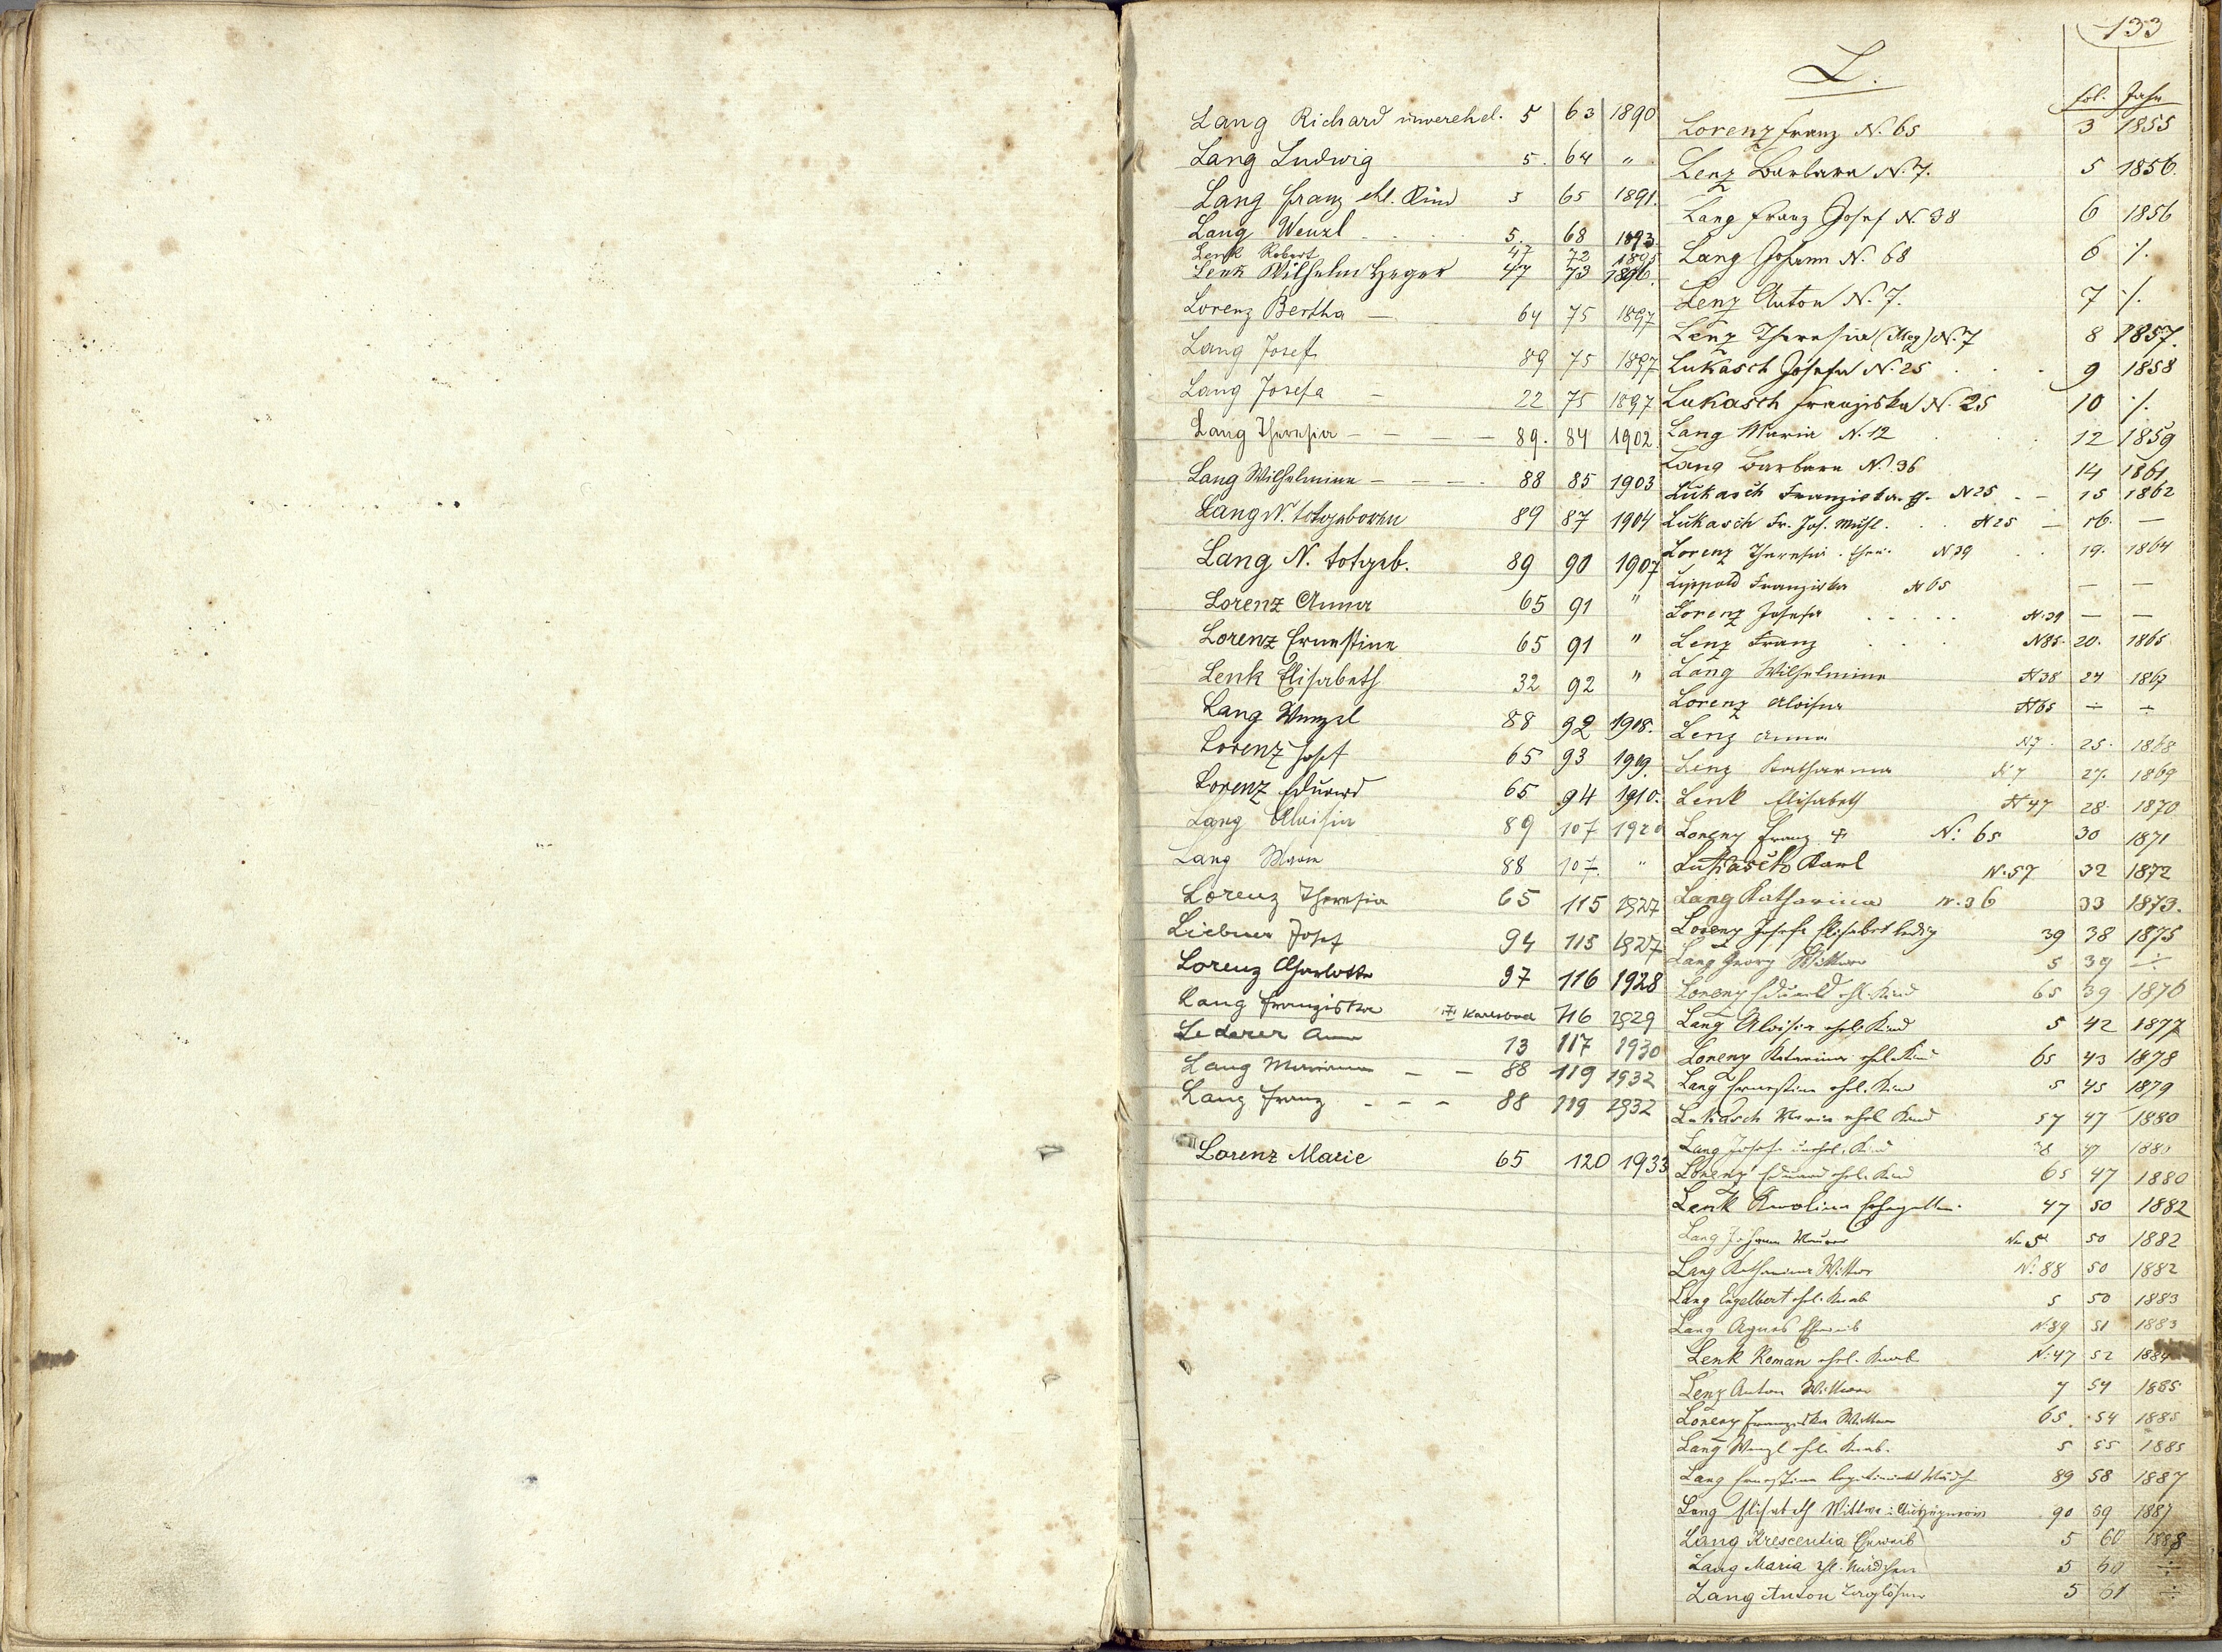 133
L.
fol. Jahr
Lorenz Franz N. 65 3 1855
Lenz Barbara N. 7. 5 1856.
Lang Franz Josef N. 38 6 1856
Lang Johann N. 68 6 ./.
Lenz Anton N. 7. 7 ./.
Lenz Theresia N. 7 8 1857.
Lukasch Josefa N. 25 . . 9 1858
Lukasch Franziska N. 25 10 ./.
Lang Maria N. 12 . . . 12 1859
Lang Barbara N. 36 14 1861
Lukasch Franziska N 25 - - 15 1862
Lukasch Fr. Jos. . . N 25 — 16. —
Lorenz Theresia N 39 . . 19. 1864
Lippold Franziska N 65 — —
Lorenz Josefa . . . . . N. 39 — —
Lenz Franz . . . N 85. 20. 1865
Lang Wilhelmine N 38 24 1867
Lorenz Aloisia N 65 ÷ ÷
Lenz Anna N 7. 25. 1868
Lenz Katharina N 7 27. 1869
Lenk Elisabeth N 47 28. 1870
Lorenz Franz N: 65 30 1871
Lukasch Karl N. 57 32 1872
Lang Katharina N. 36 33 1873.
Lorenz Josefa Elisabet ledig 39 38 1875
Lang Georg Wittwer 5 39 ÷
Lorenz Eduard ehl. Kind 65 39 1876
Lang Aloisia ehel. Kind 5 42 1877
Lorenz Katarina ehel. Kind 65 43 1878
Lang Ernestine ehel. Kind 5 45 1879
Lukasch Maria ehel Kind 57 47 1880
Lang Josefa unehel. Kind 38 47 1880
Lorenz Eduard ehel. Kind 65 47 1880
Lenk Karolina 47 50 1882
Lang Johann Maurer No 5 50 1882
Lang Katharina Wittwe N. 88 50 1882
Lang Engelbert ehel. Knab 5 50 1883
Lang Agnes Eheweib N. 89 51 1883
Lenk Roman ehel. Knab N. 47 52 1884
Lenz Anton Wittwer 7 54 1885
Lorenz Franziska Wittwe 65. 54 1885
Lang Wenzl ehel. Knab. 5 55 1885
Lang Ernestine 89 58 1887
Lang Elisabeth Wittwe 90 59 1887
Lang Krescentia Eheweib 5 60 1888
Lang Maria ehl. Mädchen 5 60 ÷
Lang Anton 5 61 ÷
Lang Richard unverehel. 5 63 1890
Lang Ludwig 5. 64 "
Lang Franz ehl. Kind 5 65 1891.
Lang Wenzl . . . . 5. 68 1893.
Lenk Robert 47 72 1895
Lenk Wilhelm Heger 47 73 1896.
Lorenz Bertha — 64 75 1897
Lang Josef 89 75 1897
Lang Josefa — 22 75 1897
Lang Theresia - - - - 89. 84 1902
Lang Wilhelmine - - - - 88 85 1903
Lang N. totgeboren 89 87 1904
Lang N. totgeb. 89 90 1907
Lorenz Anna 65 91 "
Lorenz Ernestine 65 91 "
Lenk Elisabeth 32 92 "
Lang Wenzel 88 92 1908.
Lorenz Josef 65 93 1909.
Lorenz Eduard 65 94 1910.
Lang Aloisia 89 107 1920
Lang Marie 88 107. "
Lorenz Theresia 65 115 1927
Liebner Josef 94 115 1927
Lorenz Charlotte 97 116 1928
Lang Franziska Karlsbad 116 1929
Lederer Anna 13 117 1930
Lang Marianna - - 88 119 1932
Lang Franz - - - 88 119 1932
Lorenz Marie 65 120 1933